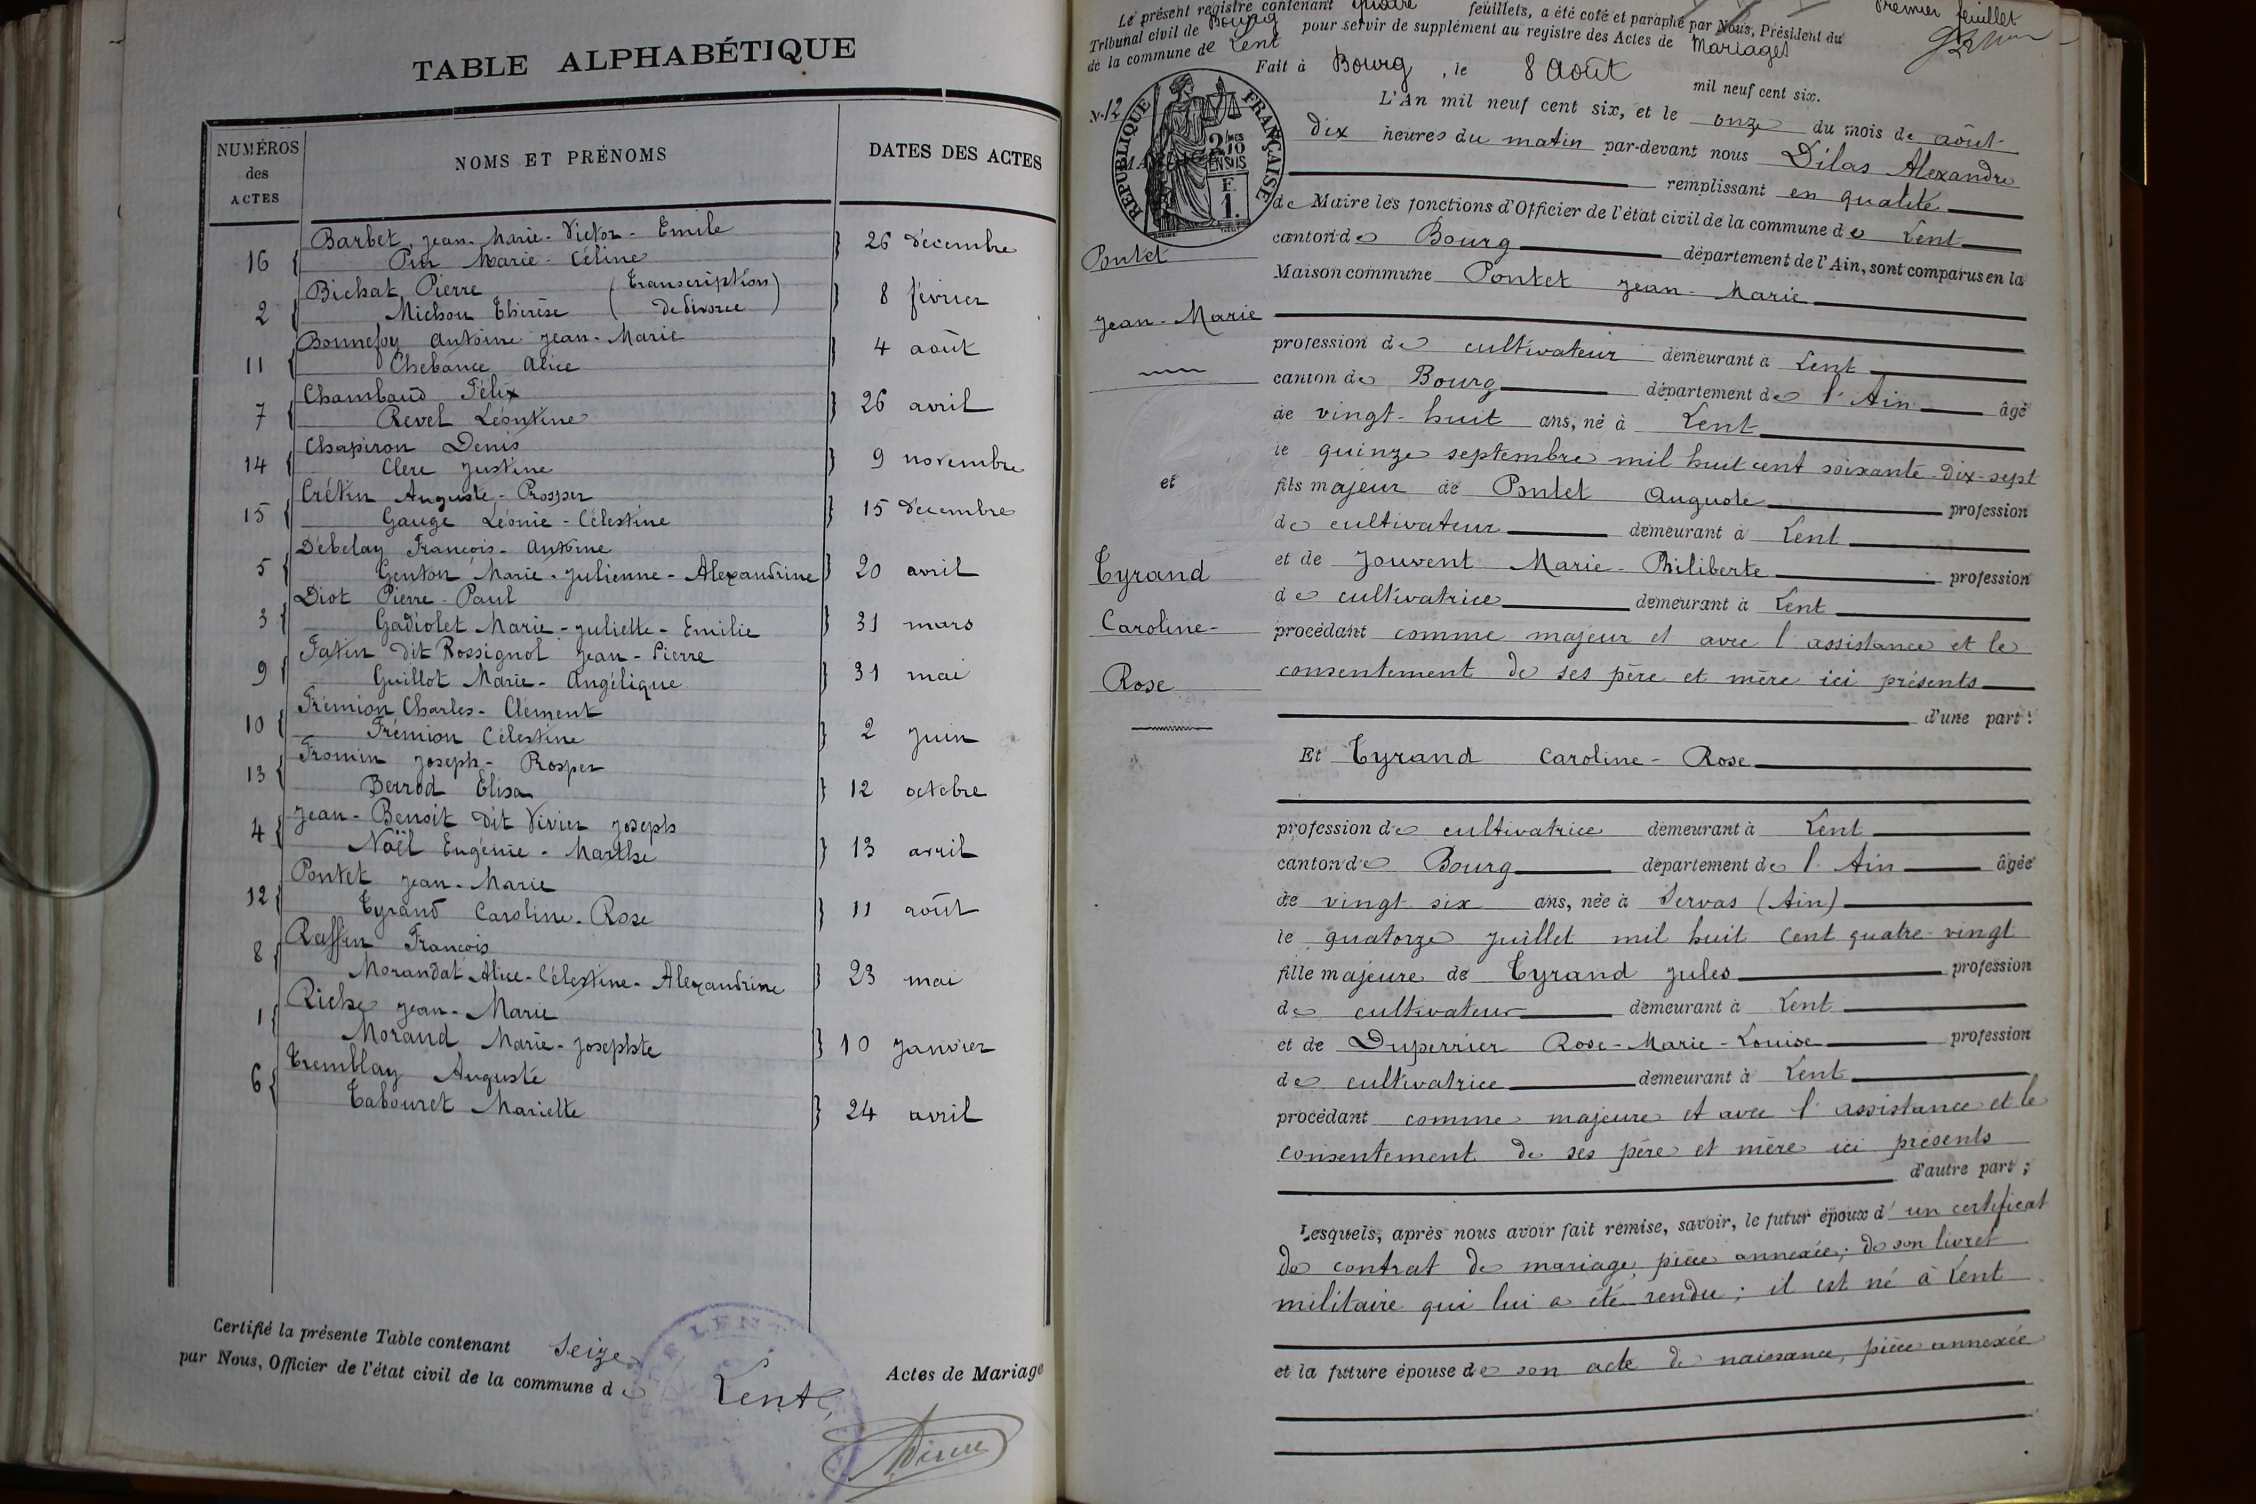 TABLE ALPHABÉTIQUE
NUMÉROS des ACTES
NOMS ET PRÉNOMS
DATES DES ACTES
Barbet, Jean-Marie-Victor-Emile
16 { Marie-Céline } 26 décembre
Bichat Pierre (Transcription
2 { Michon Thérèse de divorce) } 8 février
Bonnefoy Antoine Jean-Marie
11 { Chebance Alice } 4 août
Chambaud Félix
7 { Revel Léontine } 26 avril
Chapiron Denis
14 { Clerc Justine } 9 novembre
Crétin Auguste-Prosper
15 { Gauge Léonie-Célestine } 15 décembre
Débelay François-Antoine
5 { Genton Marie-Julienne-Alexandrine } 20 avril
Diot Pierre-Paul
3 { Gadiolet Marie-Juliette-Emilie } 31 mars
Fatin dit Rossignol Jean-Pierre
9 { Guillot Marie-Angélique } 31 mai
Frémion Charles-Clément
10 { Frémion Célestine } 2 juin
Fromin Joseph-Prosper
13 { Berrod Elisa } 12 octobre
Jean-Benoit dit Vivier Joseph
4 { Noël Eugénie-Marthe } 13 avril
Pontet Jean-Marie
12 { Tyrand Caroline-Rose } 11 août
Raffin François
8 { Morandat Alice-Célestine-Alexandrine } 23 mai
Riche Jean-Marie
1 { Morand Marie-Josephte } 10 janvier
Tremblay Auguste
6 { Tabouret Mariette } 24 avril
Certifié la présente Table contenant Seize Actes de Mariage
par Nous, Officier de l'état civil de la commune de Lent
LENT
Le présent registre contenant quatre feuillets, a été coté et paraphé par Nous, Président du
Premier feuillet
Tribunal civil de Bourg pour servir de supplément au registre des Actes de Mariages
de la commune de Lent
Fait à Bourg, le 8 Août mil neuf cent six.
N. 12
RÉPUBLIQUE FRANÇAISE
2/10 EN SUS
F. 1.
L'An mil neuf cent six, et le onze du mois de août
dix heures du matin par-devant nous Dilas Alexandre
remplissant en qualité
de Maire les fonctions d'Officier de l'état civil de la commune de Lent
canton de Bourg département de l'Ain, sont comparus en la
Maison commune Pontet Jean-Marie
profession de cultivateur demeurant à Lent
canton de Bourg département de l'Ain âgé
de vingt-huit ans, né à Lent
le quinze septembre mil huit cent soixante-dix-sept
fils majeur de Pontet Auguste profession
de cultivateur demeurant à Lent
et de Jouvent Marie-Philiberte profession
de cultivatrice demeurant à Lent
procédant comme majeur et avec l'assistance et le
consentement de ses père et mère ici présents
d'une part :
Pontet
Jean-Marie
et
Tyrand
Caroline-
Rose
Et Tyrand Caroline-Rose
profession de cultivatrice demeurant à Lent
canton de Bourg département de l'Ain âgée
de vingt six ans, née à Servas (Ain)
le quatorze juillet mil huit cent quatre-vingt
fille majeure de Tyrand Jules profession
de cultivateur demeurant à Lent
et de Duperrier Rose-Marie-Louise profession
de cultivatrice demeurant à Lent
procédant comme majeure et avec l'assistance et le
consentement de ses père et mère ici présents
d'autre part ;
Lesquels, après nous avoir fait remise, savoir, le futur époux d'un certificat
de contrat de mariage, pièce annexée; de son livret
militaire qui lui a été rendu; il est né à Lent
et la future épouse de son acte de naissance, pièce annexée